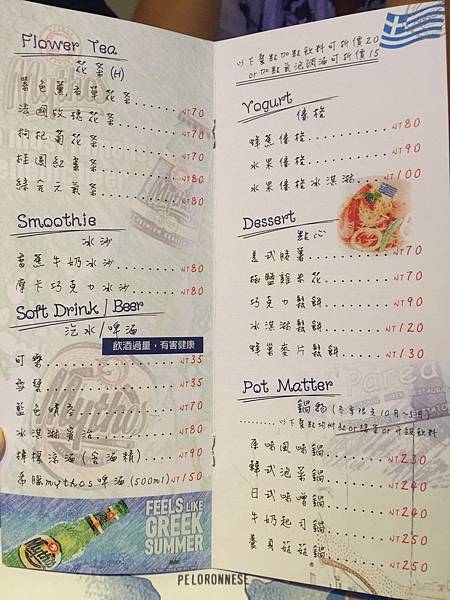 Flower Tea
花茶(H)
紫色薰衣草花茶 NT70
法國玫瑰花茶 NT70
枸杞菊花茶 NT70
桂圓紅棗茶 NT80
綜合元氣茶 NT80
Smoothie
冰沙
香蕉牛奶冰沙 NT80
摩卡巧克力冰沙 NT80
Soft Drink/Beer
汽水/啤酒
飲酒過量，有害健康
可樂 NT35
雪碧 NT35
藍色晴空 NT70
冰淇淋賓治 NT80
檸檬涼酒(含酒精) NT90
希臘mythos啤酒(500ml) NT150
FEELS LIKE
GREEK
SUMMER
Mythos
PELORONNESE
以下餐點加點飲料可折價20
or加點氣泡調酒可折價15
Yogurt
優格
蜂蜜優格 NT80
水果優格 NT90
水果優格冰淇淋 NT100
Dessert
點心
美式脆薯 NT70
椒鹽雞米花 NT70
巧克力鬆餅 NT90
冰淇淋鬆餅 NT120
蜂巢麥片鬆餅 NT130
Pot Matter
鍋物(冬季限定10月~3月)
以下餐點均附
原味風味鍋 NT230
韓式泡菜鍋 NT240
日式味噌鍋 NT240
牛奶起司鍋 NT250
養身菇菇鍋 NT250